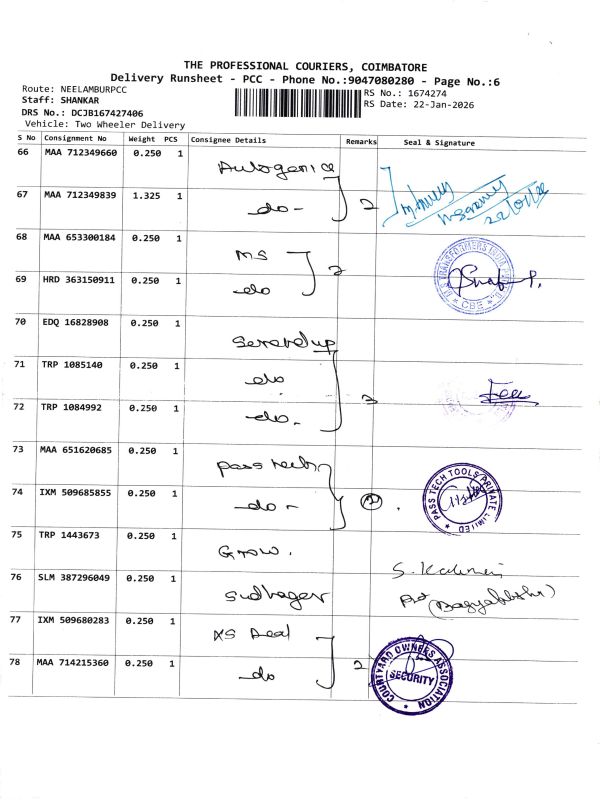 THE PROFESSIONAL COURIERS, COIMBATORE
Delivery Runsheet - PCC - Phone No.:9047080280 - Page No.:6
Route: NEELAMBURPCC
Staff: SHANKAR
DRS No.: DCJB167427406
Vehicle: Two Wheeler Delivery
RS No.: 1674274
RS Date: 22-Jan-2026
S No Consignment No Weight PCS Consignee Details Remarks Seal & Signature
66 MAA 712349660 0.250 1 Autogenica
67 MAA 712349839 1.325 1 -do- 2 22/01/26
68 MAA 653300184 0.250 1 MS
69 HRD 363150911 0.250 1 -do 2
CBE
70 EDQ 16828908 0.250 1
71 TRP 1085140 0.250 1 -do
72 TRP 1084992 0.250 1 -do. 3
73 MAA 651620685 0.250 1 Pass tech
74 IXM 509685855 0.250 1 -do- 2
PASS TECH TOOLS PRIVATE LIMITED
75 TRP 1443673 0.250 1 Grow.
76 SLM 387296049 0.250 1 Sudhager
77 IXM 509680283 0.250 1 XS Real
78 MAA 714215360 0.250 1 -do 2
COURTYARD OWNERS ASSOCIATION
SECURITY